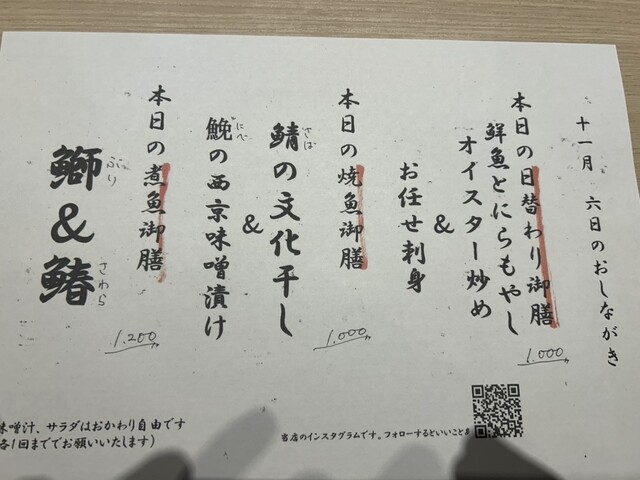 十一月 六日のおしながき
本日の日替わり御膳
鮮魚とにらもやし
オイスター炒め
&
お任せ刺身
1,000
本日の焼魚御膳
さば
鯖の文化干し
&
にべ
鮸の西京味噌漬け
1,000
本日の煮魚御膳
ぶり
鰤&鰆
さわら
1,200
味噌汁、サラダはおかわり自由です
各1回まででお願いいたします)
当店のインスタグラムです。フォローするといいこと